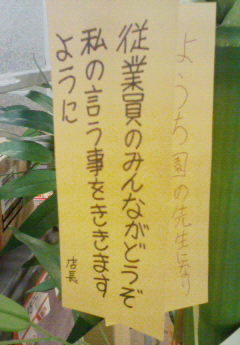 従業員のみんながどうぞ
私の言う事をききます
ように
店長
ようち園の先生になり